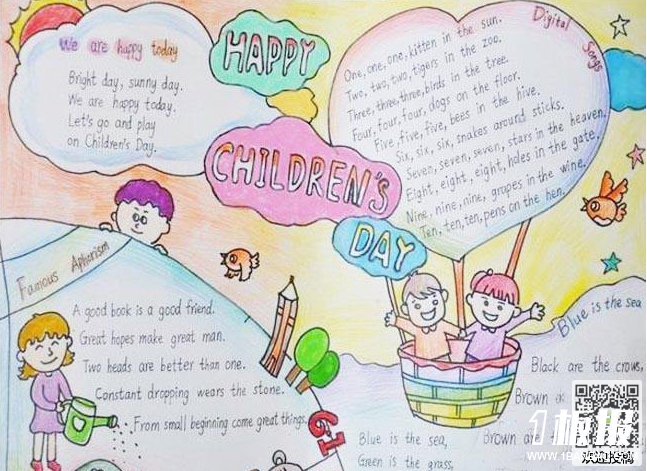 We are happy today
Bright day, sunny day.
We are happy today.
Let's go and play
on Children's Day.
HAPPY
CHILDREN'S
DAY
Digital Songs
One, one, one, kitten in the sun.
Two, two, two, tigers in the zoo.
Three, three, three, birds in the tree.
Four, four, four, dogs on the floor.
Five, five, five, bees in the hive.
Six, six, six, snakes around sticks.
Seven, seven, seven, stars in the heaven.
Eight, eight, eight, holes in the gate.
Nine, nine, nine, grapes in the wine.
Ten, ten, ten, pens on the hen.
Famous Aphorism
A good book is a good friend.
Great hopes make great man.
Two heads are better than one.
Constant dropping wears the stone.
From small beginning come great things.
61
Blue is the sea
Black are the crows,
Brown
Brown are
Blue is the sea,
Green is the grass,
1板报